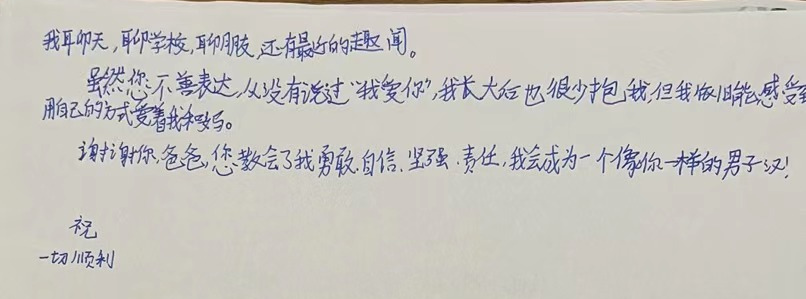 我聊天,聊学校,聊朋友,还有最近的趣闻。
虽然您不善表达,从没有说过“我爱你”,我长大后也很少抱我,但我依旧能感受到
用自己的方式爱着我和妈妈。
谢谢你,爸爸,您教会了我勇敢、自信、坚强、责任,我会成为一个像你一样的男子汉!
祝
一切顺利